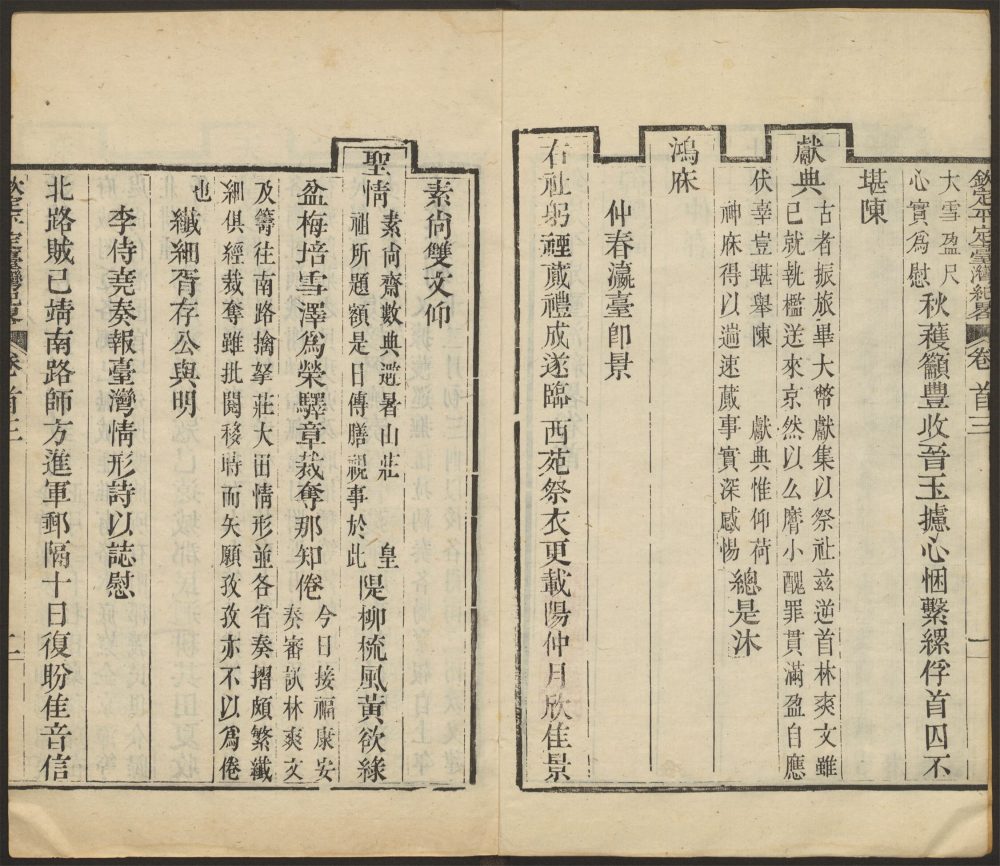 欽定平定臺灣紀畧 卷首三 一
大雪盈尺
心實爲慰
秋穫籲豐收晉玉攄心悃繫縲俘首囚不
堪陳
古者振旅畢大幣獻集以祭社兹逆首林爽文雖
獻典
已就執檻送來京然以么麿小醜罪貫滿盈自應
伏辜豈堪舉陳
獻典惟仰荷
神庥得以遄速蕆事實深感惕
總是沐
鴻庥
仲春瀛臺卽景
右社躬禋蕆禮成遂臨西苑祭衣更載陽仲月欣佳景
素尚雙文仰
聖情
素尚齋數典避暑山莊
皇
祖所題額是日傳膳視事於此
隄柳梳風黃欲綠
盆梅培雪澤爲榮驛章裁奪那知倦
今日接福康安
奏審訊林爽文
及籌往南路擒拏莊大田情形並各省奏摺頗繁纖
細俱經裁奪雖批閱移時而矢願孜孜亦不以爲倦
也
纖細胥存公與明
李侍堯奏報臺灣情形詩以誌慰
北路賊已靖南路師方進軍郵隔十日復盼佳音信
欽定平定臺灣紀畧 卷首三 二